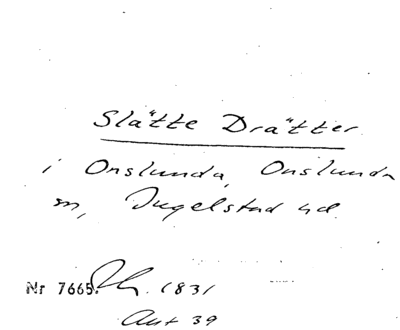 Slätte Drätter
i Onslunda, Onslunda
sn, Ingelstad hd.
Nr 7665. 1831
Akt 39